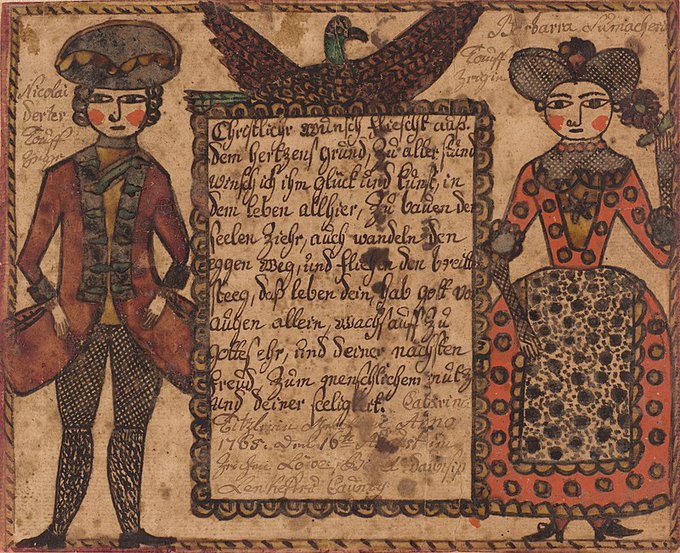 Nicolai
derter
Touff
Barbarra Sumachern
Touff
Zeugin
Christlichr wunsch fliescht auß
dem hertzens grund, Zu aller stund
winsch ich ihm glück und kunst, in
dem leben allhier, Zu bauen der
seelen Ziehr, auch wandeln den
eggen weg, und fliehen den breitten
steeg, daß leben dein, hab gott vor
augen allein, wachs auff Zu
gottes ehr, und deiner nächsten
freud Zum menschlichem nutz
und deiner seeligkt. Catarin
Anno
1765. den 16ten August
Caunty